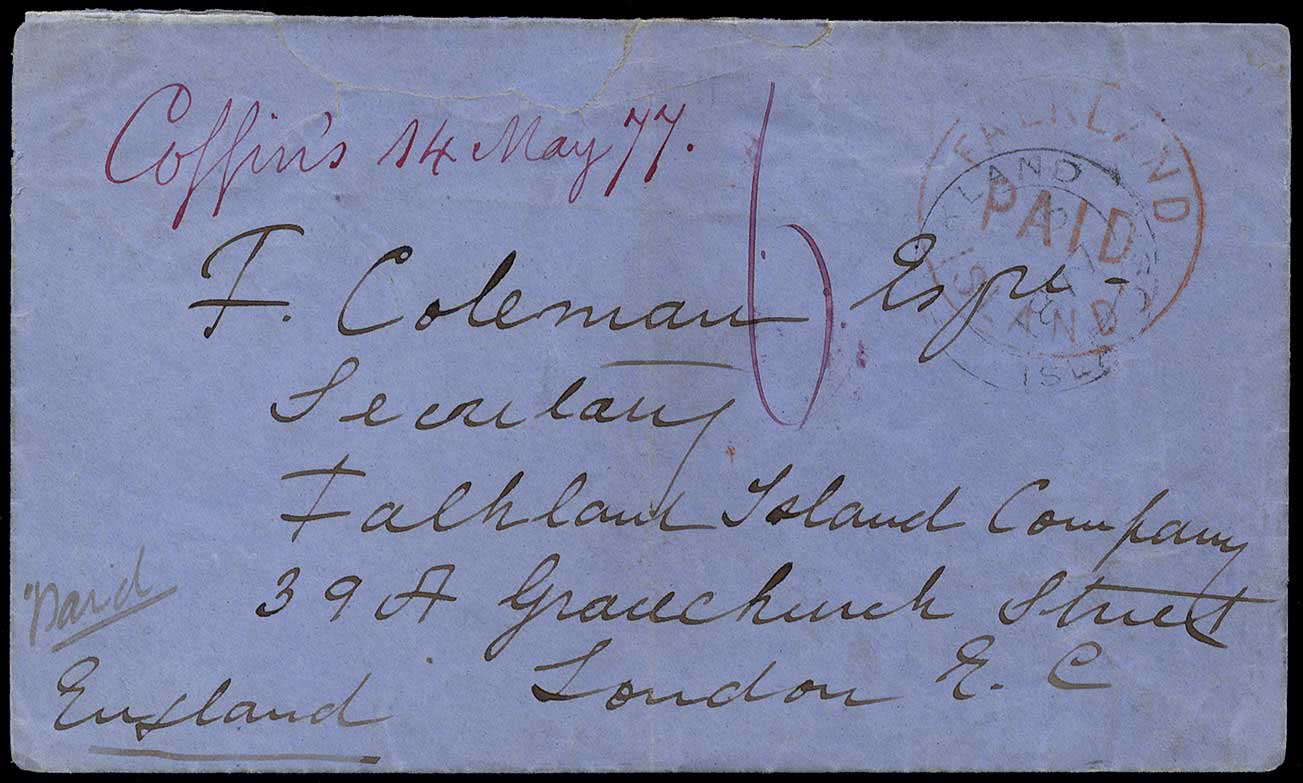 Coffin's 14 May 77.
6
FALKLAND
PAID
ISLAND
F. Coleman Esqre -
Secretary
Falkland Island Company
39 A Gracechurch Street
London E. C
Paid
England